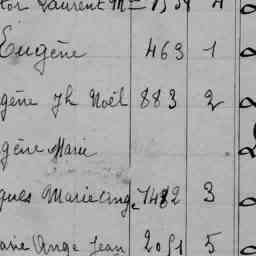 Laurent M
Eugène 463 1
gène Jh Noël 883 2
gène Marie
ques Marie Ange 1482 3
arie Ange Jean 2051 5